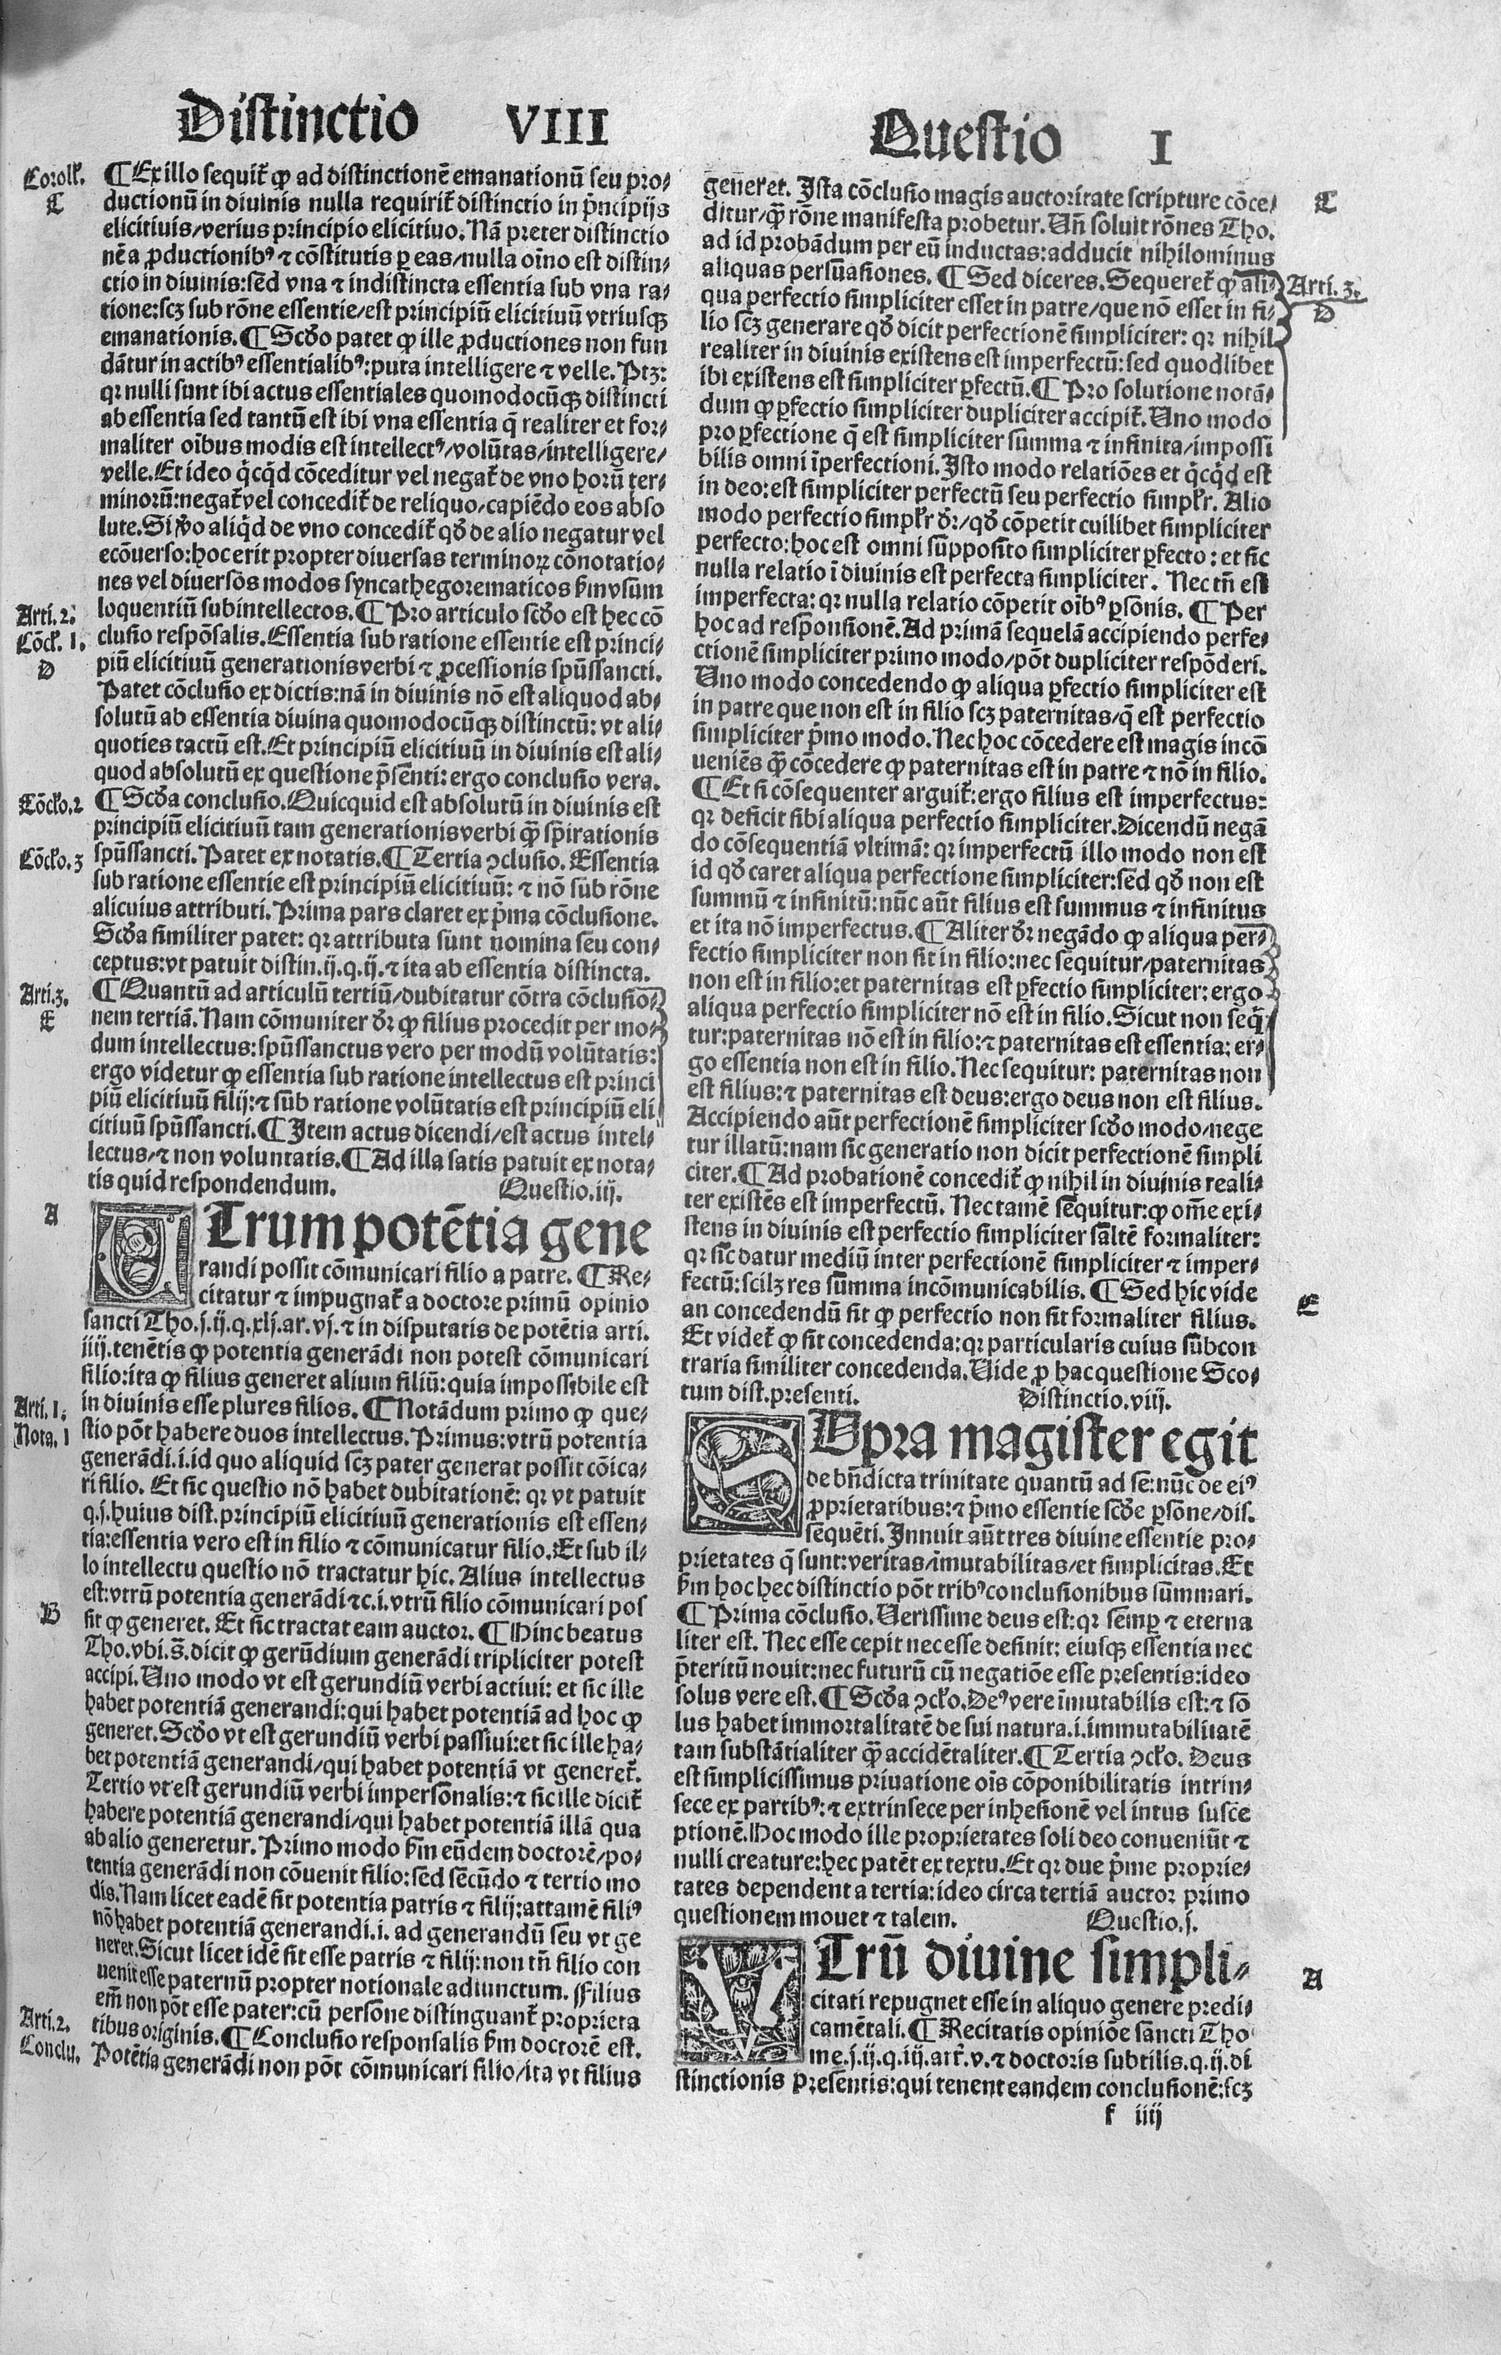 Distinctio VIII
Questio I
Corolľ.
C
¶ Ex illo sequit̃ ꝙ ad distinctionē emanationū seu pro⸗
ductionū in diuinis nulla requirit̃ distinctio in p̃ncipijs
elicitiuis/verius principio elicitiuo. Nā preter distinctio
nē a ꝓductionibꝰ ⁊ cōstitutis ꝑ eas/nulla oīno est distin⸗
ctio in diuinis: sed vna ⁊ indistincta essentia sub vna ra⸗
tione: scꝫ sub rōne essentie/est principiū elicitiuū vtriusqꝫ
emanationis. ¶ Scďo patet ꝙ ille ꝓductiones non fun
dātur in actibꝰ essentialibꝰ: puta intelligere ⁊ velle. Ptꝫ:
qꝛ nulli sunt ibi actus essentiales quomodocūqꝫ distincti
ab essentia sed tantū est ibi vna essentia q̄ realiter et for⸗
maliter oībus modis est intellectꝰ/volūtas/intelligere/
velle. Et ideo q̇cq̇d cōceditur vel negat̃ de vno horū ter⸗
minorū: negat̃ vel concedit̃ de reliquo/capiēdo eos abso
lute. Si ꝟo aliq̇d de vno concedit̃ qď de alio negatur vel
ecōuerso: hoc erit propter diuersas terminoꝝ cōnotatio⸗
nes vel diuersos modos syncathegorematicos ẜm vsum
loquentiū subintellectos. ¶ Pro articulo scďo est hec cō
clusio respōsalis. Essentia sub ratione essentie est princi⸗
piū elicitiuū generationis verbi ⁊ ꝓcessionis spūssancti.
Patet cōclusio ex dictis: nā in diuinis nō est aliquod ab⸗
solutū ab essentia diuina quomodocūqꝫ distinctū: vt ali⸗
quoties tactū est. Et principiū elicitiuū in diuinis est ali⸗
quod absolutū ex questione p̄senti: ergo conclusio vera.
¶ Scďa conclusio. Quicquid est absolutū in diuinis est
principiū elicitiuū tam generationis verbi q̄ꝫ spirationis
spūssancti. Patet ex notatis. ¶ Tertia ↄclusio. Essentia
sub ratione essentie est principiū elicitiuū: ⁊ nō sub rōne
alicuius attributi. Prima pars claret ex p̃ma cōclusione.
Scďa similiter patet: qꝛ attributa sunt nomina seu con⸗
ceptus: vt patuit distin. ij. q. ij. ⁊ ita ab essentia distincta.
¶ Quantū ad articulū tertiū/dubitatur cōtra cōclusio⸗
nem tertiā. Nam cōmuniter dr̃ ꝙ filius procedit per mo⸗
dum intellectus: spūssanctus vero per modū volūtatis:
ergo videtur ꝙ essentia sub ratione intellectus est princi
piū elicitiuū filij: ⁊ sub ratione volūtatis est principiū eli
citiuū spūssancti. ¶ Item actus dicendi/est actus intel⸗
lectus/⁊ non voluntatis. ¶ Ad illa satis patuit ex nota⸗
tis quid respondendum. Questio. iij.
Arti. 2.
Cōcľ. 1.
D
Cōcľo. 2
Cōcľo. 3
Arti. 3.
E
A
UTrum potētia gene
randi possit cōmunicari filio a patre. ¶ Re⸗
citatur ⁊ impugnat̃ a doctore primū opinio
sancti Tho. j. ij. q. xlj. ar. vj. ⁊ in disputatis de potētia arti.
iiij. tenētis ꝙ potentia generādi non potest cōmunicari
filio: ita ꝙ filius generet alium filiū: quia impossibile est
in diuinis esse plures filios. ¶ Notādum primo ꝙ que⸗
stio pōt habere duos intellectus. Primus: vtrū potentia
generādi. i. id quo aliquid scꝫ pater generat possit cōica⸗
ri filio. Et sic questio nō habet dubitationē: qꝛ vt patuit
q. j. huius dist. principiū elicitiuū generationis est essen⸗
tia: essentia vero est in filio ⁊ cōmunicatur filio. Et sub il⸗
lo intellectu questio nō tractatur hic. Alius intellectus
est: vtrū potentia generādi ⁊c. i. vtrū filio cōmunicari pos
sit ꝙ generet. Et sic tractat eam auctor. ¶ Hinc beatus
Tho. vbi. s̄. dicit ꝙ gerūdium generādi tripliciter potest
accipi. Uno modo vt est gerundiū verbi actiui: et sic ille
habet potentiā generandi: qui habet potentiā ad hoc ꝙ
generet. Scďo vt est gerundiū verbi passiui: et sic ille ha⸗
bet potentiā generandi/qui habet potentiā vt generet̃.
Tertio vt est gerundiū verbi impersonalis: ⁊ sic ille dicit̃
habere potentiā generandi/qui habet potentiā illā qua
ab alio generetur. Primo modo ẜm eūdem doctorē/po⸗
tentia generādi non cōuenit filio: sed secūdo ⁊ tertio mo
dis. Nam licet eadē sit potentia patris ⁊ filij: attamē filiꝰ
nō habet potentiā generandi. i. ad generandū seu vt ge
neret. Sicut licet idē sit esse patris ⁊ filij: non tñ filio con
uenit esse paternū propter notionale adiunctum. Filius
em̄ non pōt esse pater: cū persone distinguant̃ proprieta
tibus originis. ¶ Conclusio responsalis ẜm doctorē est.
Potētia generādi non pōt cōmunicari filio/ita vt filius
Arti. 1.
Nota. 1
B
Arti. 2.
Conclu.
generet. Ista cōclusio magis auctoritate scripture cōce⸗
ditur/q̄ꝫ rōne manifesta probetur. Uñ soluit rōnes Tho.
ad id probādum per eū inductas: adducit nihilominus
aliquas persuasiones. ¶ Sed diceres. Sequeret̃ ꝙ ali⸗
qua perfectio simpliciter esset in patre/que nō esset in fi⸗
lio scꝫ generare qď dicit perfectionē simpliciter: qꝛ nihil
realiter in diuinis existens est imperfectū: sed quodlibet
ibi existens est simpliciter ꝑfectū. ¶ Pro solutione notā⸗
dum ꝙ ꝑfectio simpliciter dupliciter accipit̃. Uno modo
pro ꝑfectione q̄ est simpliciter summa ⁊ infinita/impossi
bilis omni īperfectioni. Isto modo relatiōes et q̇cq̇d est
in deo: est simpliciter perfectū seu perfectio simplr̃. Alio
modo perfectio simplr̃ dr̃/qď cōpetit cuilibet simpliciter
perfecto: hoc est omni supposito simpliciter ꝑfecto: et sic
nulla relatio ī diuinis est perfecta simpliciter. Nec tñ est
imperfecta: qꝛ nulla relatio cōpetit oībꝰ ꝑsonis. ¶ Per
hoc ad responsionē. Ad primā sequelā accipiendo perfe⸗
ctionē simpliciter primo modo/pōt dupliciter respōderi.
Uno modo concedendo ꝙ aliqua ꝑfectio simpliciter est
in patre que non est in filio scꝫ paternitas/q̄ est perfectio
simpliciter p̃mo modo. Nec hoc cōcedere est magis incō
ueniēs q̄ꝫ cōcedere ꝙ paternitas est in patre ⁊ nō in filio.
¶ Et si cōsequenter arguit̃: ergo filius est imperfectus:
qꝛ deficit sibi aliqua perfectio simpliciter. Dicendū negā
do cōsequentiā vltimā: qꝛ imperfectū illo modo non est
id qď caret aliqua perfectione simpliciter: sed qď non est
summū ⁊ infinitū: nūc aūt filius est summus ⁊ infinitus
et ita nō imperfectus. ¶ Aliter dr̃ negādo ꝙ aliqua per⸗
fectio simpliciter non sit in filio: nec sequitur/paternitas
non est in filio: et paternitas est ꝑfectio simpliciter: ergo
aliqua perfectio simpliciter nō est in filio. Sicut non seq̇
tur: paternitas nō est in filio: ⁊ paternitas est essentia: er⸗
go essentia non est in filio. Nec sequitur: paternitas non
est filius: ⁊ paternitas est deus: ergo deus non est filius.
Accipiendo aūt perfectionē simpliciter scďo modo/nege
tur illatū: nam sic generatio non dicit perfectionē simpli
citer. ¶ Ad probationē concedit̃ ꝙ nihil in diuinis reali⸗
ter existēs est imperfectū. Nec tamē sequitur: ꝙ om̄e exi⸗
stens in diuinis est perfectio simpliciter saltē formaliter:
qꝛ sic datur mediū inter perfectionē simpliciter ⁊ imper⸗
fectū: scilꝫ res summa incōmunicabilis. ¶ Sed hic vide
an concedendū sit ꝙ perfectio non sit formaliter filius.
Et videt̃ ꝙ sit concedenda: qꝛ particularis cuius subcon
traria similiter concedenda. Uide ꝓ hac questione Sco⸗
tum dist. presenti. Distinctio. viij.
C
Arti. 3.
D
E
SUpra magister egit
de bn̄dicta trinitate quantū ad se: nūc de eiꝰ
ꝓprietatibus: ⁊ p̃mo essentie scďe ꝑsone/dis.
sequēti. Innuit aūt tres diuine essentie pro⸗
prietates q̄ sunt: veritas/īmutabilitas/et simplicitas. Et
ẜm hoc hec distinctio pōt tribꝰ conclusionibus summari.
¶ Prima cōclusio. Uerissime deus est: qꝛ semꝑ ⁊ eterna
liter est. Nec esse cepit nec esse desinit: eiusqꝫ essentia nec
p̄teritū nouit: nec futurū cū negatiōe esse presentis: ideo
solus vere est. ¶ Scďa ↄcľo. Deꝰ vere īmutabilis est: ⁊ so
lus habet immortalitatē de sui natura. i. immutabilitatē
tam substātialiter q̄ꝫ accidētaliter. ¶ Tertia ↄcľo. Deus
est simplicissimus priuatione oīs cōponibilitatis intrin⸗
sece ex partibꝰ: ⁊ extrinsece per inhesionē vel intus susce
ptionē. Hoc modo ille proprietates soli deo conueniūt ⁊
nulli creature: hec patēt ex textu. Et qꝛ due p̃me proprie⸗
tates dependent a tertia: ideo circa tertiā auctor primo
questionem mouet ⁊ talem. Questio. j.
VTrū diuine simpli⸗
citati repugnet esse in aliquo genere predi⸗
camētali. ¶ Recitatis opiniōe sancti Tho
me. j. ij. q. iij. art̃. v. ⁊ doctoris subtilis. q. ij. di
stinctionis presentis: qui tenent eandem conclusionē: scꝫ
A
f iiij